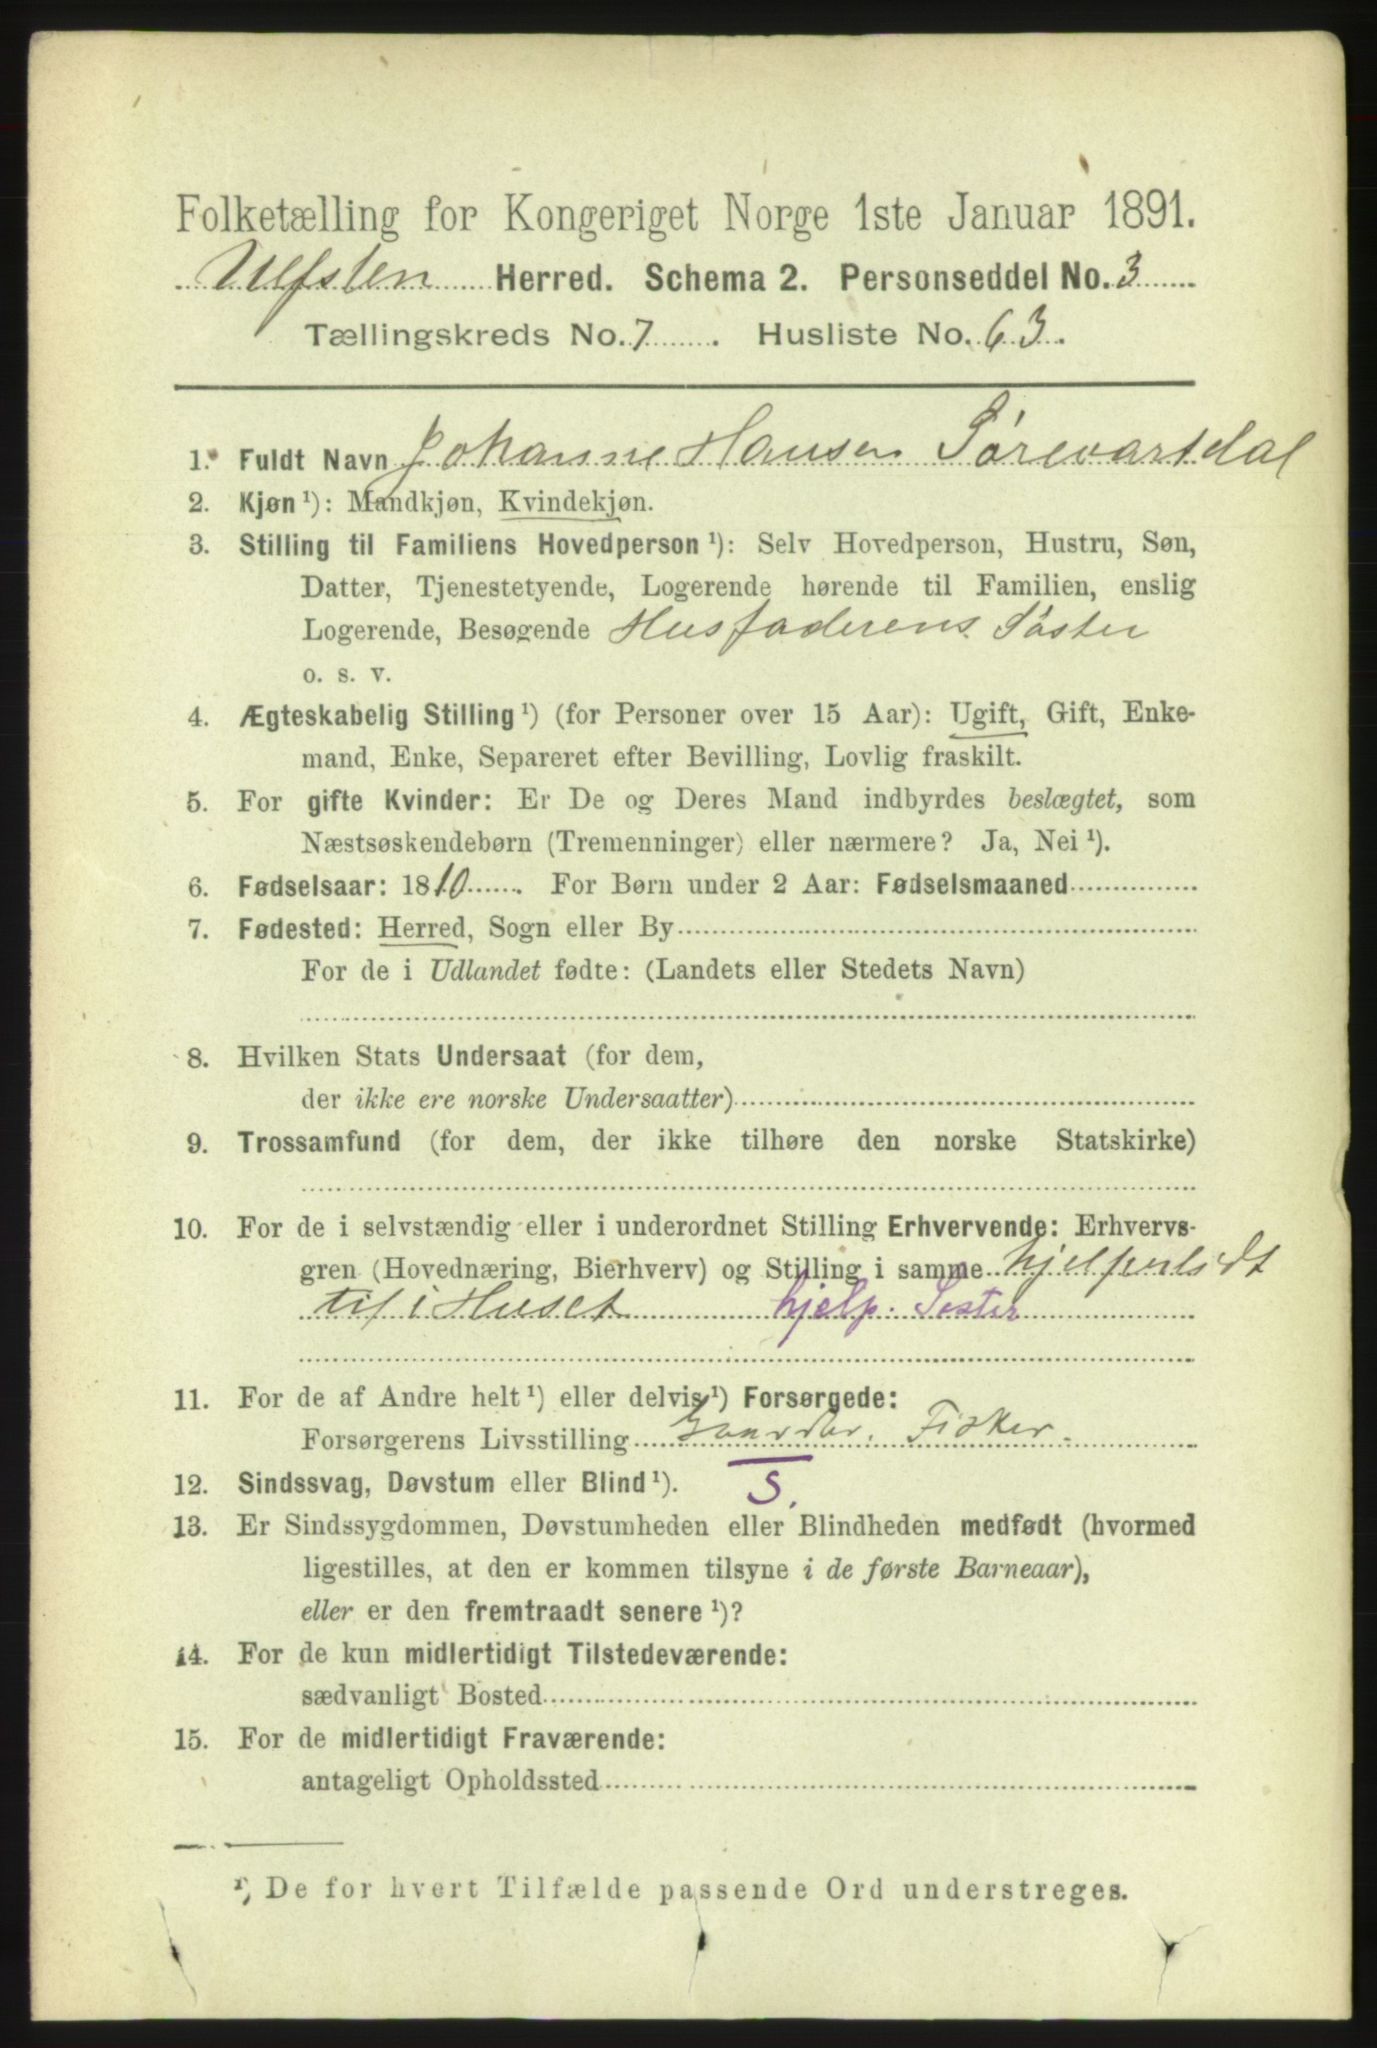 Folketælling for Kongeriget Norge 1ste Januar 1891.
Ulfsten Herred. Schema 2. Personseddel No. 3
Tællingskreds No. 7. Husliste No. 63.
1. Fuldt Navn Johanne Hansen Sörevartdal
2. Kjøn ¹): Mandkjøn, Kvindekjøn.
3. Stilling til Familiens Hovedperson ¹): Selv Hovedperson, Hustru, Søn,
Datter, Tjenestetyende, Logerende hørende til Familien, enslig
Logerende, Besøgende Husfaderens Söster
o. s. v.
4. Ægteskabelig Stilling ¹) (for Personer over 15 Aar): Ugift, Gift, Enke-
mand, Enke, Separeret efter Bevilling, Lovlig fraskilt.
5. For gifte Kvinder: Er De og Deres Mand indbyrdes beslægtet, som
Næstsøskendebørn (Tremenninger) eller nærmere? Ja, Nei ¹).
6. Fødselsaar: 1810. For Børn under 2 Aar: Fødselsmaaned
7. Fødested: Herred, Sogn eller By
For de i Udlandet fødte: (Landets eller Stedets Navn)
8. Hvilken Stats Undersaat (for dem,
der ikke ere norske Undersaatter)
9. Trossamfund (for dem, der ikke tilhøre den norske Statskirke)
10. For de i selvstændig eller i underordnet Stilling Erhvervende: Erhvervs-
gren (Hovednæring, Bierhverv) og Stilling i samme hjelper lidt
til i Huset hjelp. Søster
11. For de af Andre helt ¹) eller delvis ¹) Forsørgede:
Forsørgerens Livsstilling Gaardbr. Fisker.
12. Sindssvag, Døvstum eller Blind ¹). S.
13. Er Sindssygdommen, Døvstumheden eller Blindheden medfødt (hvormed
ligestilles, at den er kommen tilsyne i de første Barneaar),
eller er den fremtraadt senere ¹)?
14. For de kun midlertidigt Tilstedeværende:
sædvanligt Bosted
15. For de midlertidigt Fraværende:
antageligt Opholdssted
¹) De for hvert Tilfælde passende Ord understreges.